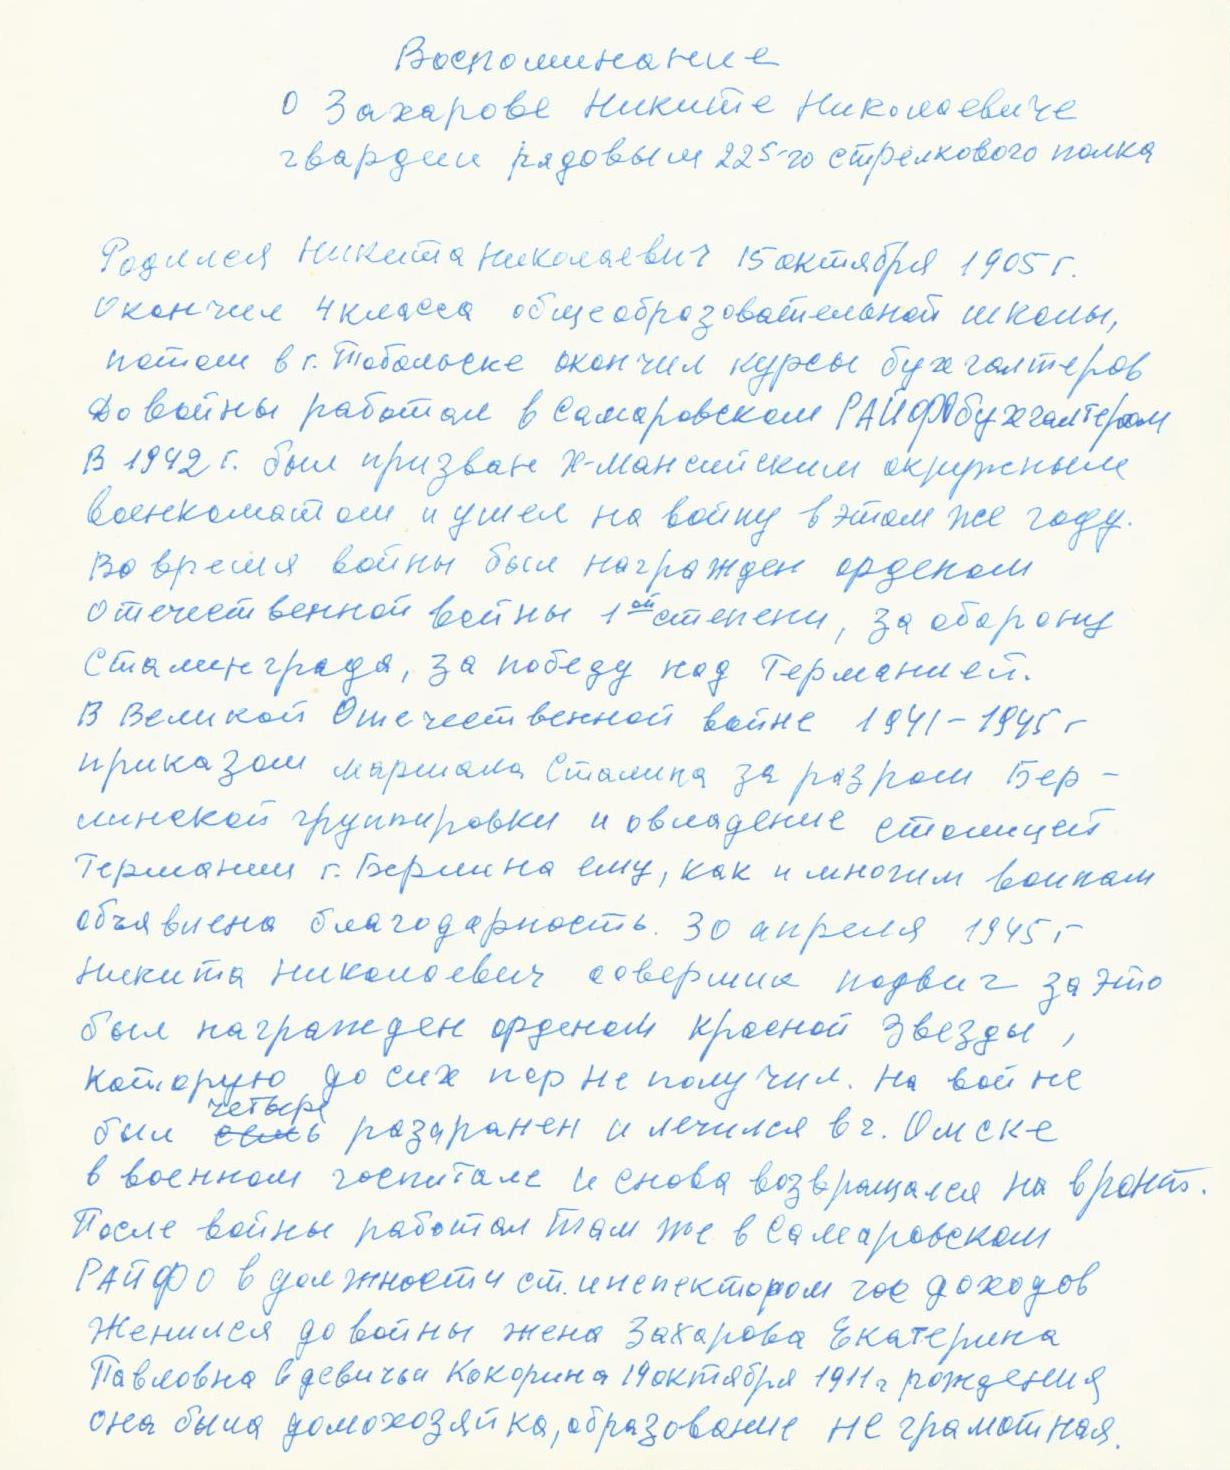 Воспоминание
О Захарове Никите Николаевиче
гвардии рядовым 225-го стрелкового полка
Родился Никита Николаевич 15 октября 1905 г.
Окончил 4 класса общеобразовательной школы,
потом в г. Тобольске окончил курсы бухгалтеров
До войны работал в Самаровском РАЙФО бухгалтером
В 1942 г. был призван Х-Мансийским окружным
военкоматом и ушел на войну в этом же году.
Во время войны был награжден орденом
Отечественной войны 1ой степени, за оборону
Сталинграда, за победу над Германией.
В Великой Отечественной войне 1941-1945 г
приказом маршала Сталина за разгром Бер-
линской группировки и овладение столицей
Германии г. Берлина ему, как и многим воинам
объявлена благодарность. 30 апреля 1945 г
Никита Николаевич совершил подвиг за это
был награжден орденом Красной Звезды,
которую до сих пор не получил. На войне
был четыре раза ранен и лечился в г. Омске
в военном госпитале и снова возвращался на вронт.
После войны работал там же в Самаровском
РАЙФО в должности ст. инспектором гос доходов
Женился до войны жена Захарова Екатерина
Павловна в девичьи Кокорина 19 октября 1911 г рождения
она была домохозяйка, образование не грамотная.